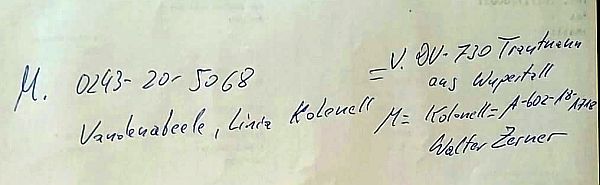 M. 0243-20-5068
Vandenabeele, Linia Kolonell
= V. DV-730 Trautmann
aus Wupertall
M= Kolonell = A-602-18-1718
Walter Zerner